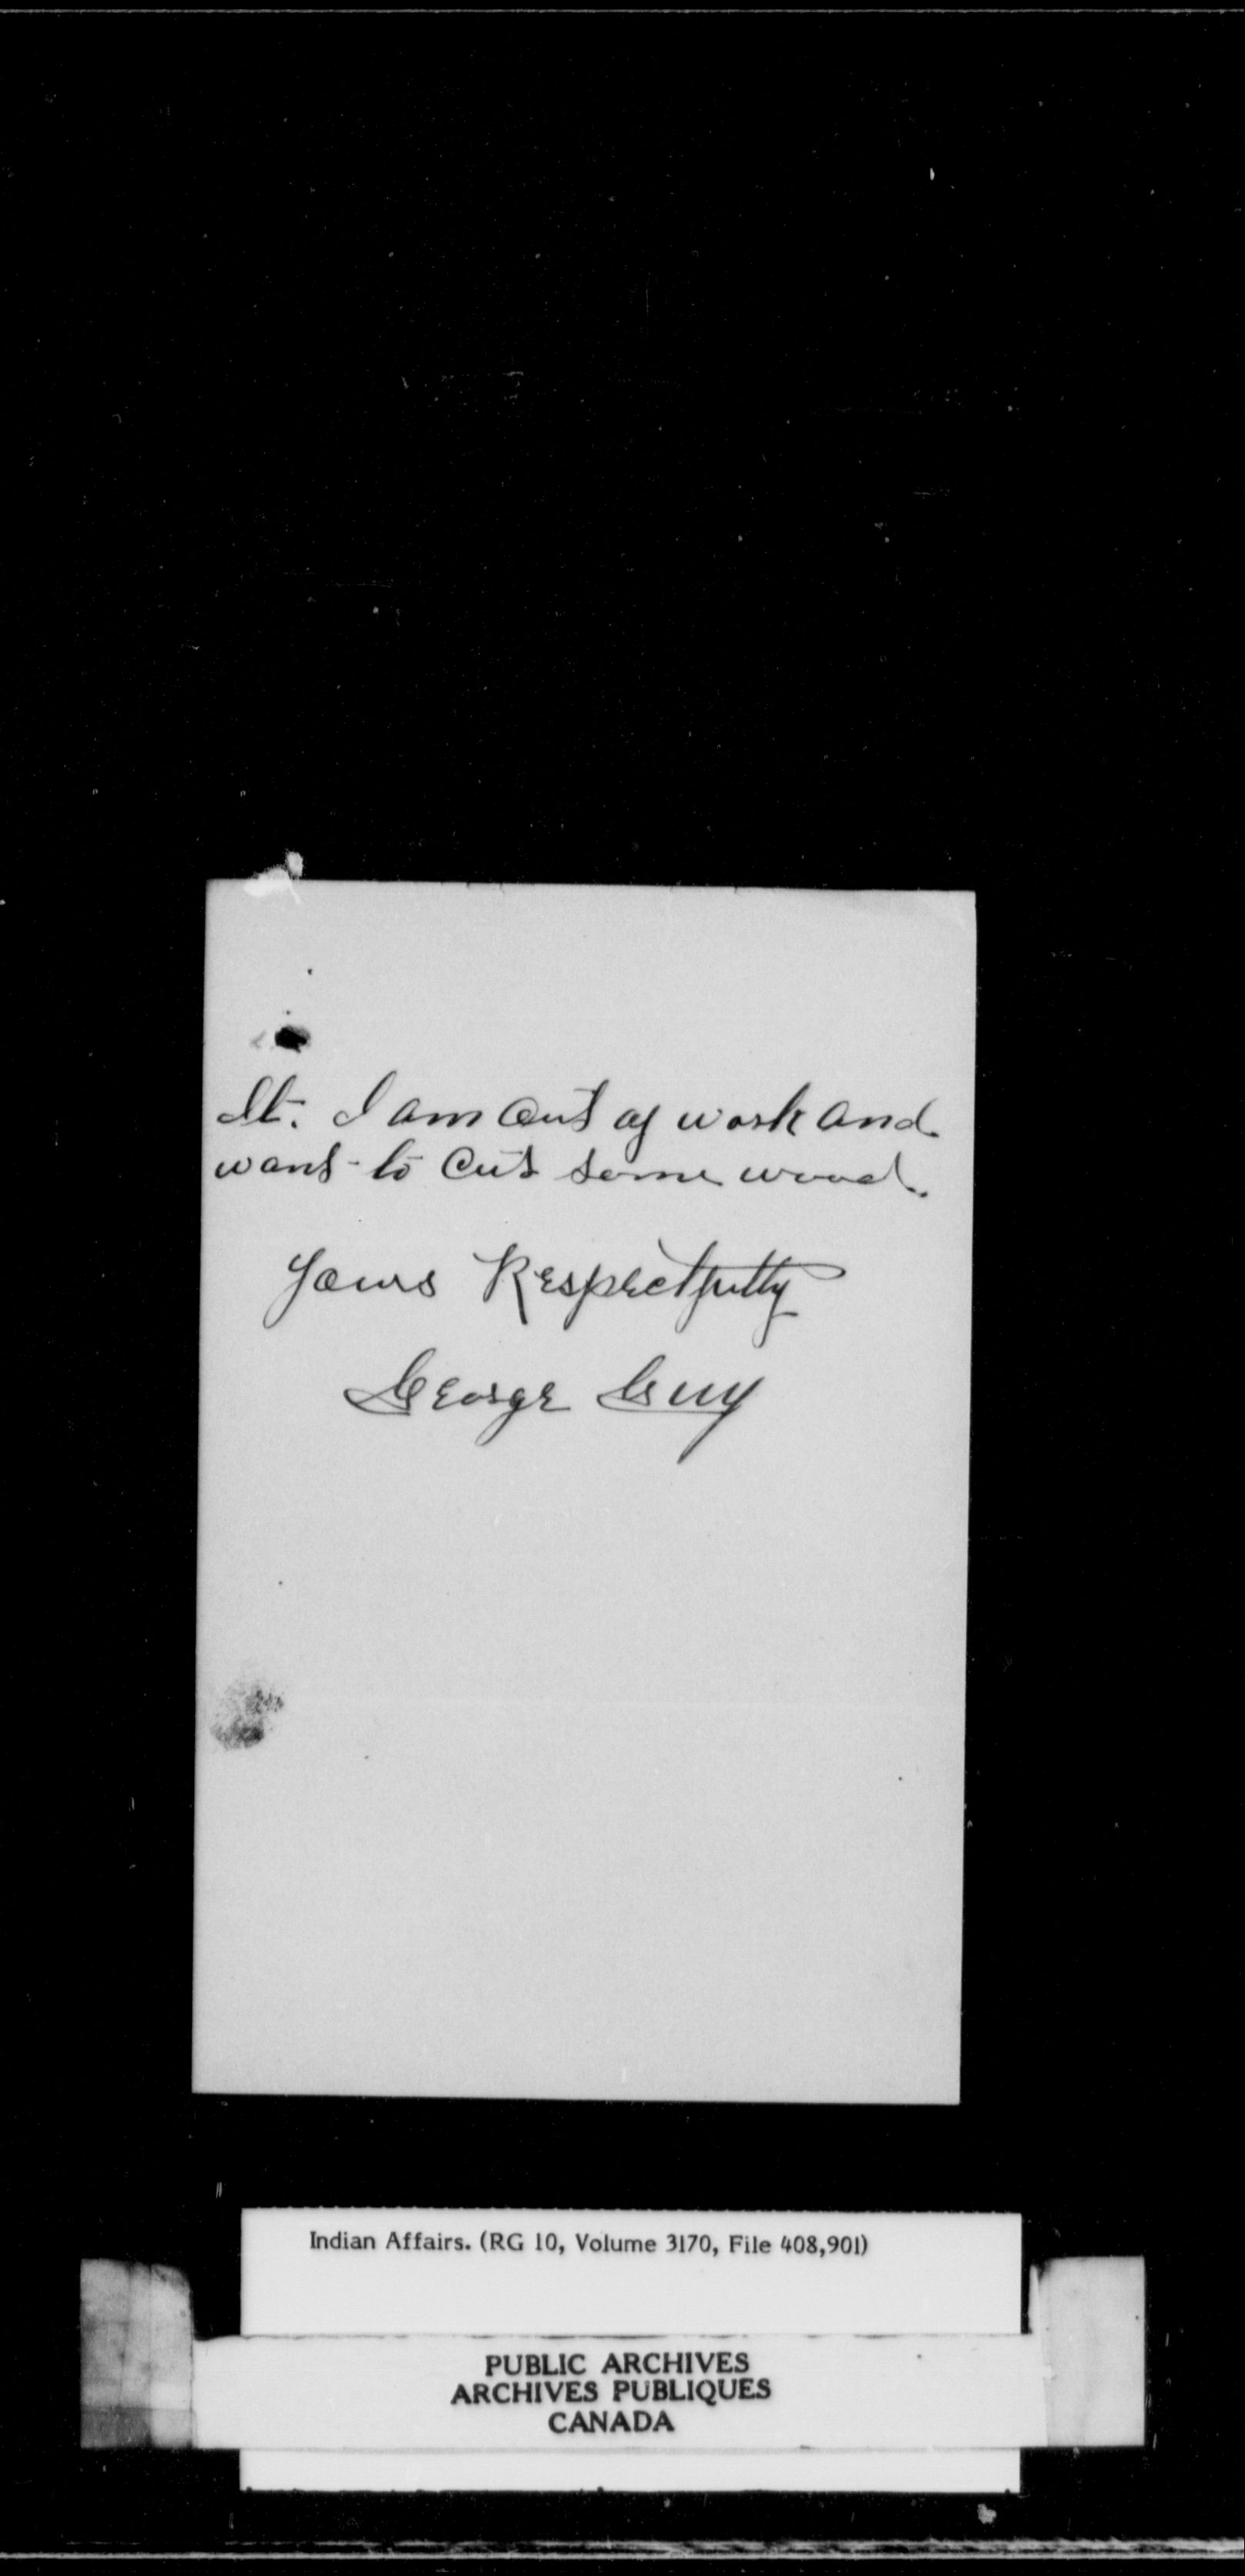 It. I am out of work and
want to cut some wood.
Yours Respectfully
George Guy
Indian Affairs. (RG 10, Volume 3170, File 408,901)
PUBLIC ARCHIVES
ARCHIVES PUBLIQUES
CANADA